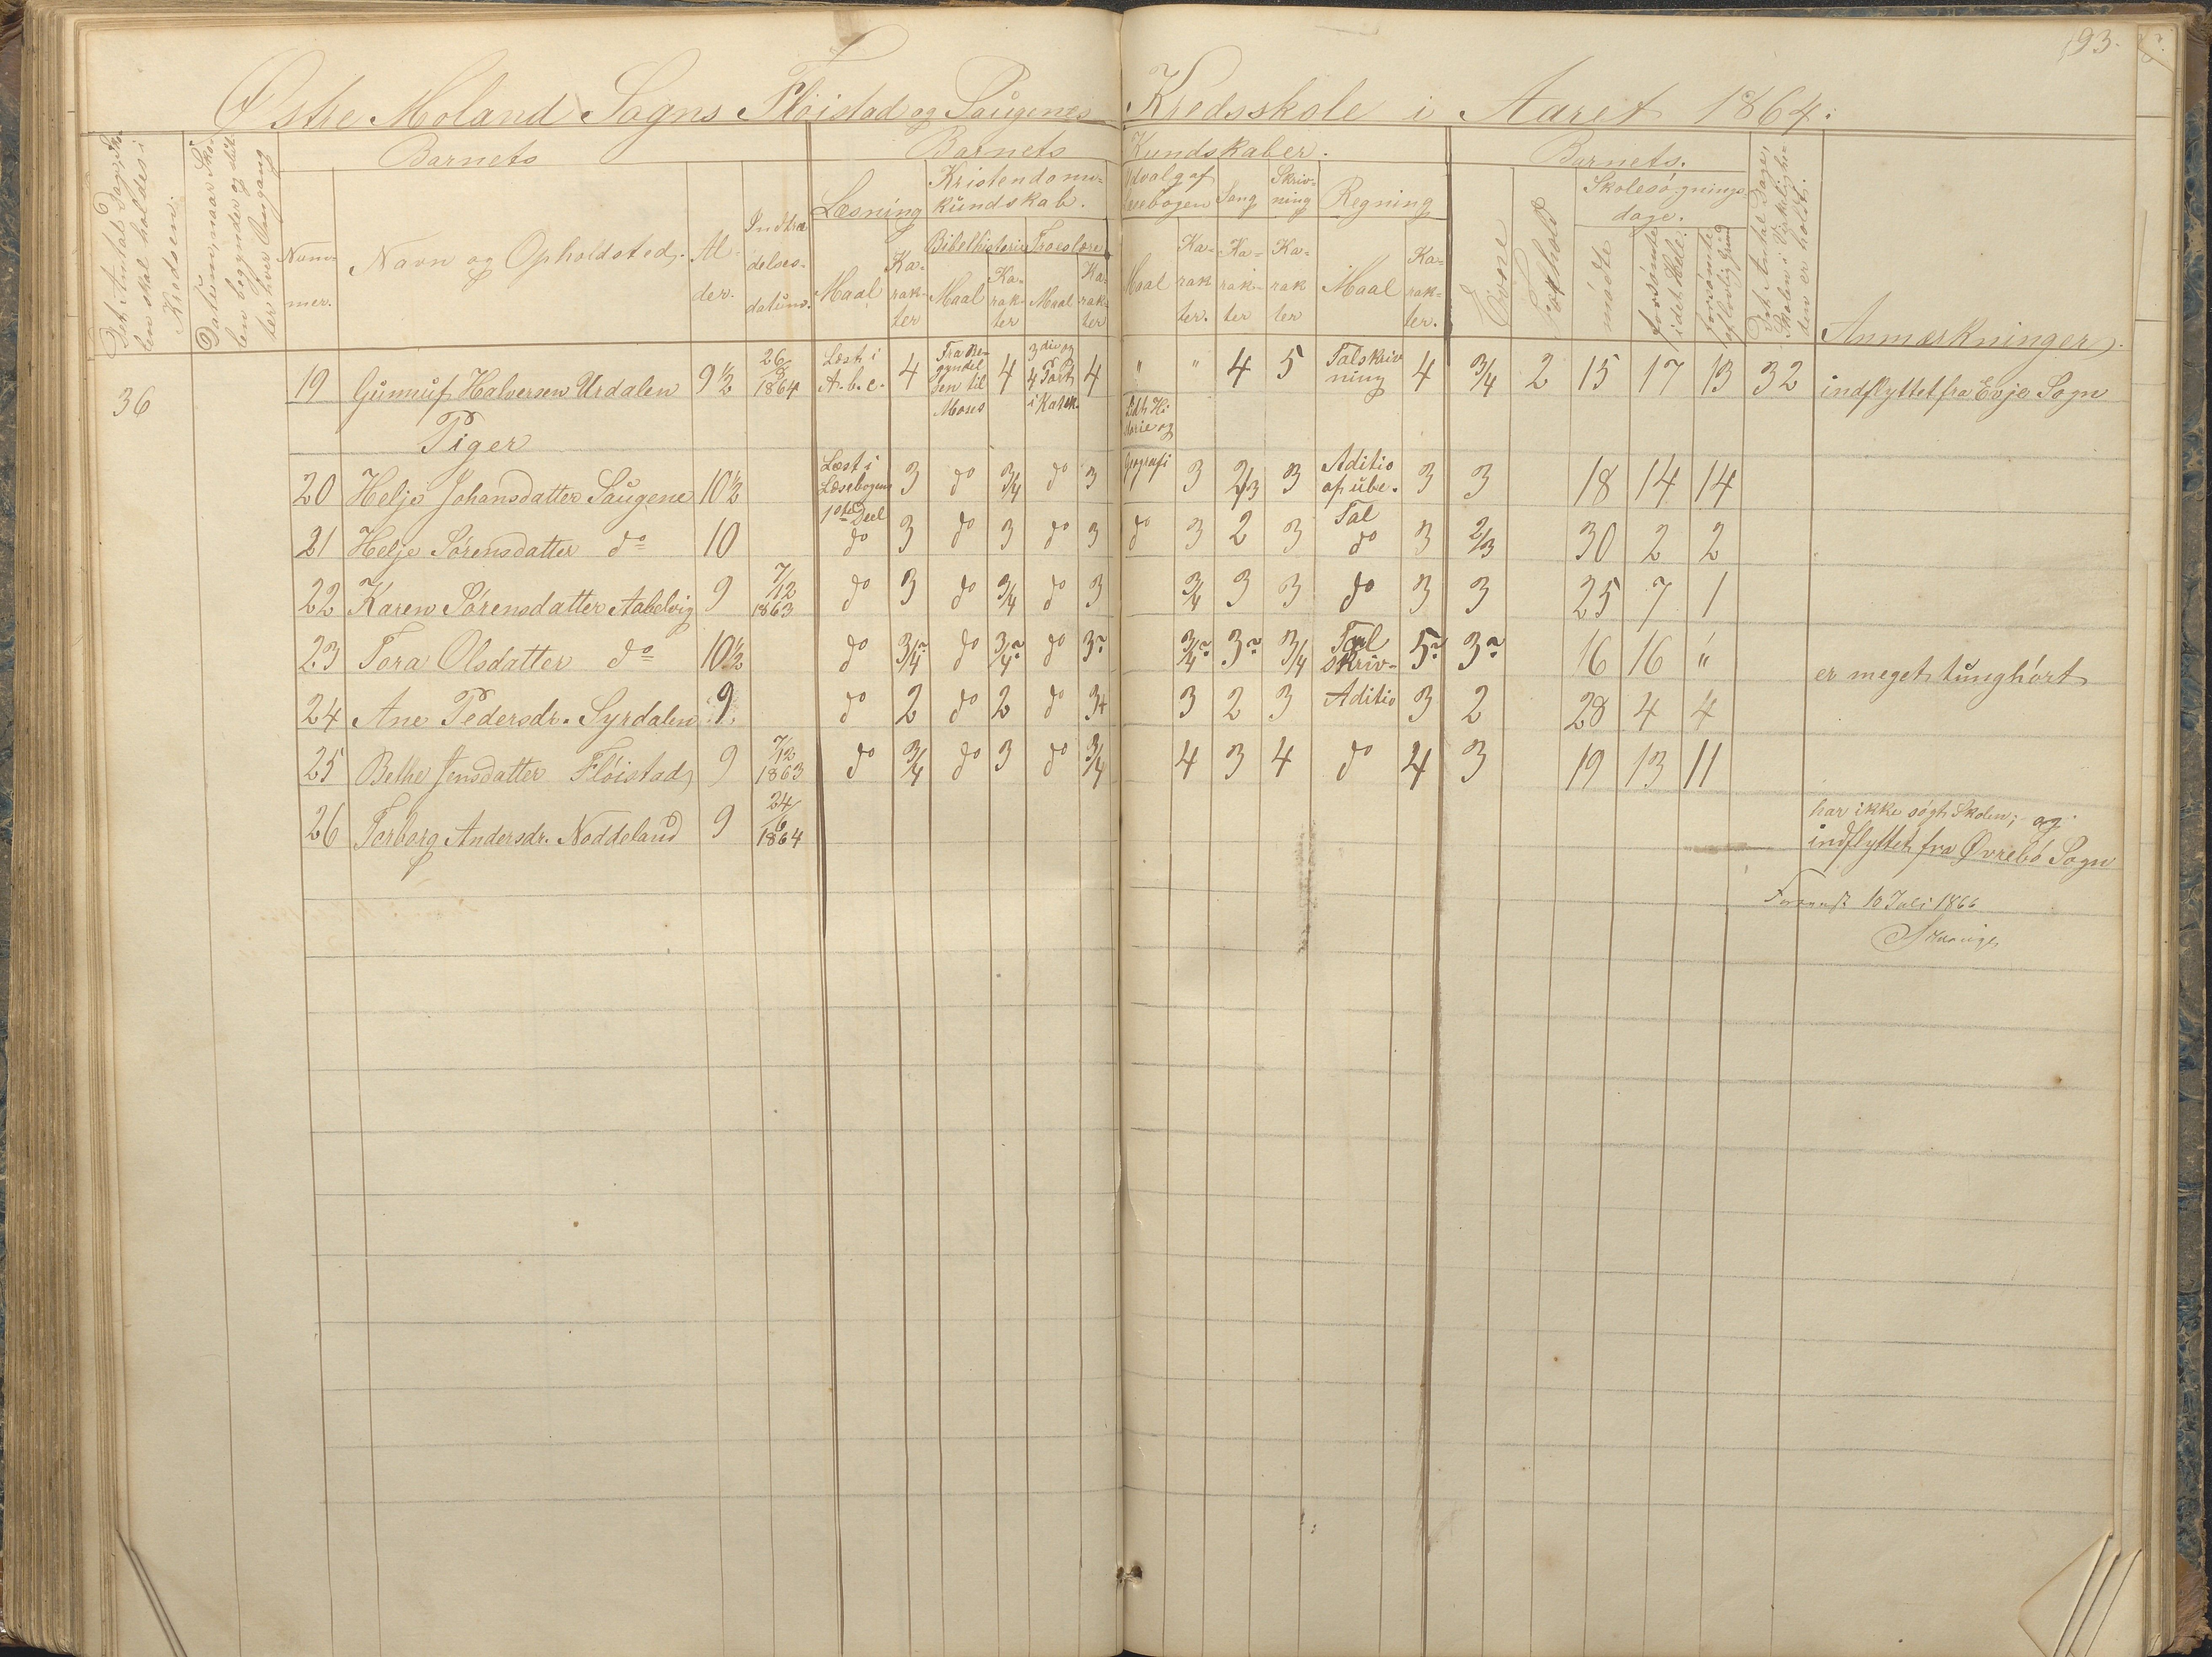 93.
Østre Moland Sogns Flöistad og Saugenes Kredsskole i Aaret 1864:
Det Antal Dage, Sko-
len skal holdes i
Kredsen.
Datum, naar Sko-
len begynder og slut-
ter hver Omgang
Barnets
Num-
mer.
Navn og Opholdssted.
Al-
der.
Indtræ-
delses-
datum.
Barnets Kundskaber.
Læsning
Maal
Ka-
rak-
ter
Kristendoms-
kundskab.
Bibelhistorie
Maal
Ka-
rak-
ter
Troeslære
Maal
Ka-
rak-
ter
Udvalg af
Læsebogen
Maal
Ka-
rak
ter.
Sang
Ka-
rak-
ter
Skriv-
ning
Ka-
rak
ter
Regning
Maal
Ka-
rak-
ter.
Barnets.
Evne
Forhold
Skolesögnings-
dage.
mödte
forsömte
i det Hele.
forsömte
af lovlig Grund
Det Antal Dage,
Skolen i Virkelighe-
den er holdt.
Anmærkninger.
36
19 Gunnuf Halversen Urdalen 9½ 26/8 1864 Læst i A.b.c. 4 Fra Be- gyndel sen til Moses 4 3 div og 4 Part i Katek. 4 " " 4 5 Talskriv ning 4 3/4 2 15 17 13 32 indflyttet fra Evje Sogn
Piger
20 Helje Johansdatter Saugene 10½ Læst i Læsebogens 1ste Deel 3 do 3/4 do 3 Lidt Hi storie og Geografi 3 2/3 3 Aditio af ube. Tal 3 3 18 14 14
21 Helje Sörensdatter do 10 do 3 do 3 do 3 do 3 2 3 do 3 2/3 30 2 2
22 Karen Sörensdatter Aabelvig 9 7/12 1863 do 3 do 3/4 do 3 3/4 3 3 do 3 3 25 7 1
23 Tora Olsdatter do 10½ do 3/4 do 3/4 do 3 3/4 3 3/4 Tal skriv- 5 3 16 16 " er meget tunghört
24 Ane Pedersdr. Syrdalen 9 do 2 do 2 do 3+ 3 2 3 Aditio 3 2 28 4 4
25 Bethe Jensdatter Flöistad 9 7/12 1863 do 3/4 do 3 do 3/4 4 3 4 do 4 3 19 13 11
26 Torborg Andersdr. Noddeland 9 24/6 1864 har ikke sögt Skolen; og
indflyttet fra Øvrebö Sogn
10 Juli 1866